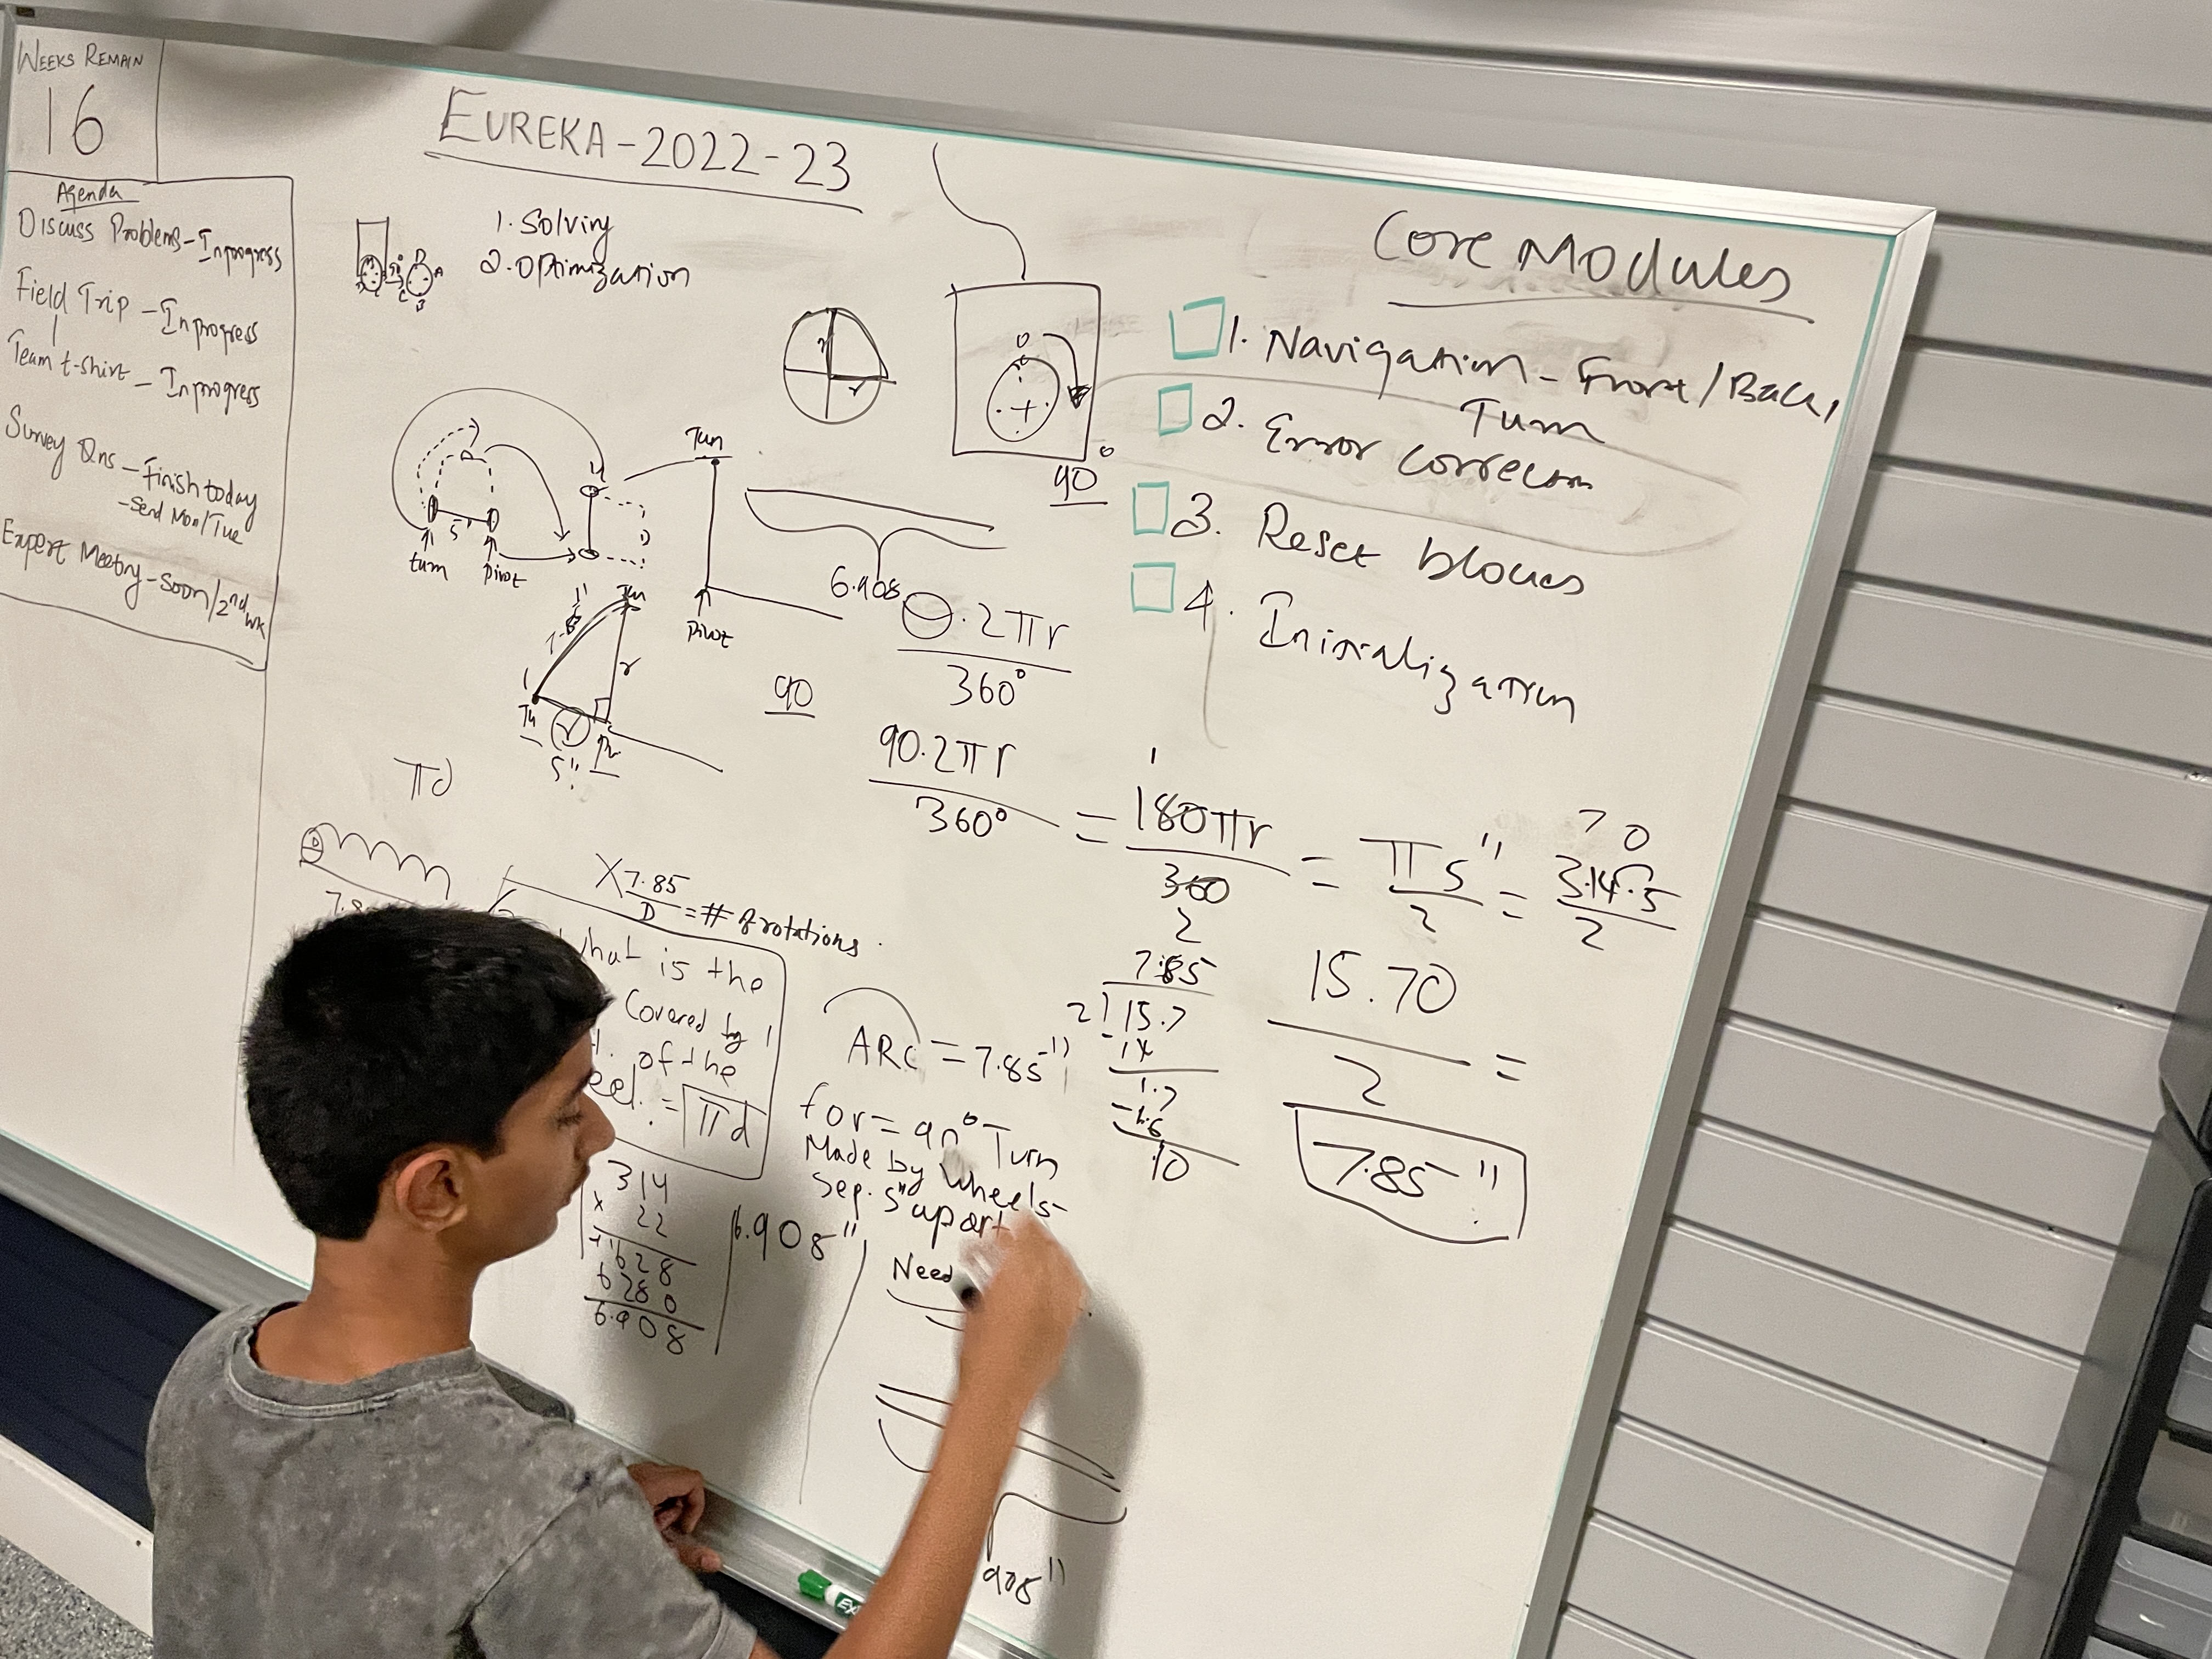 WEEKS REMAIN
16
Agenda
Discuss Problems - Inprogress
Field Trip - Inprogress
Team t-shirt - Inprogress
Survey Qns - Finish today
- Send Mon/Tue
Expert Meeting - Soon/2nd wk
EUREKA - 2022-23
1. Solving
2. Optimization
Core Modules
1. Navigation - Front/Back,
Turn
2. Error correction
3. Reset blocks
4. Initialization
90°
Turn
5"
turn
pivot
pivot
6.908
r
5"
90
Θ.2πr
360°
πd
90.2πr
360°
=
180πr
360
2
=
π5"
2
=
3.14.5
2
X 7.85
D
= # of rotations
what is the
Covered by 1
of the
= πd
ARC = 7.85"
for = 90° Turn
Made by Wheels
Sep. 5" apart
Need
7.85
2 15.7
-14
1.7
-1.6
10
15.70
2
=
7.85"
314
x 22
628
6280
6.908
6.908"
908"